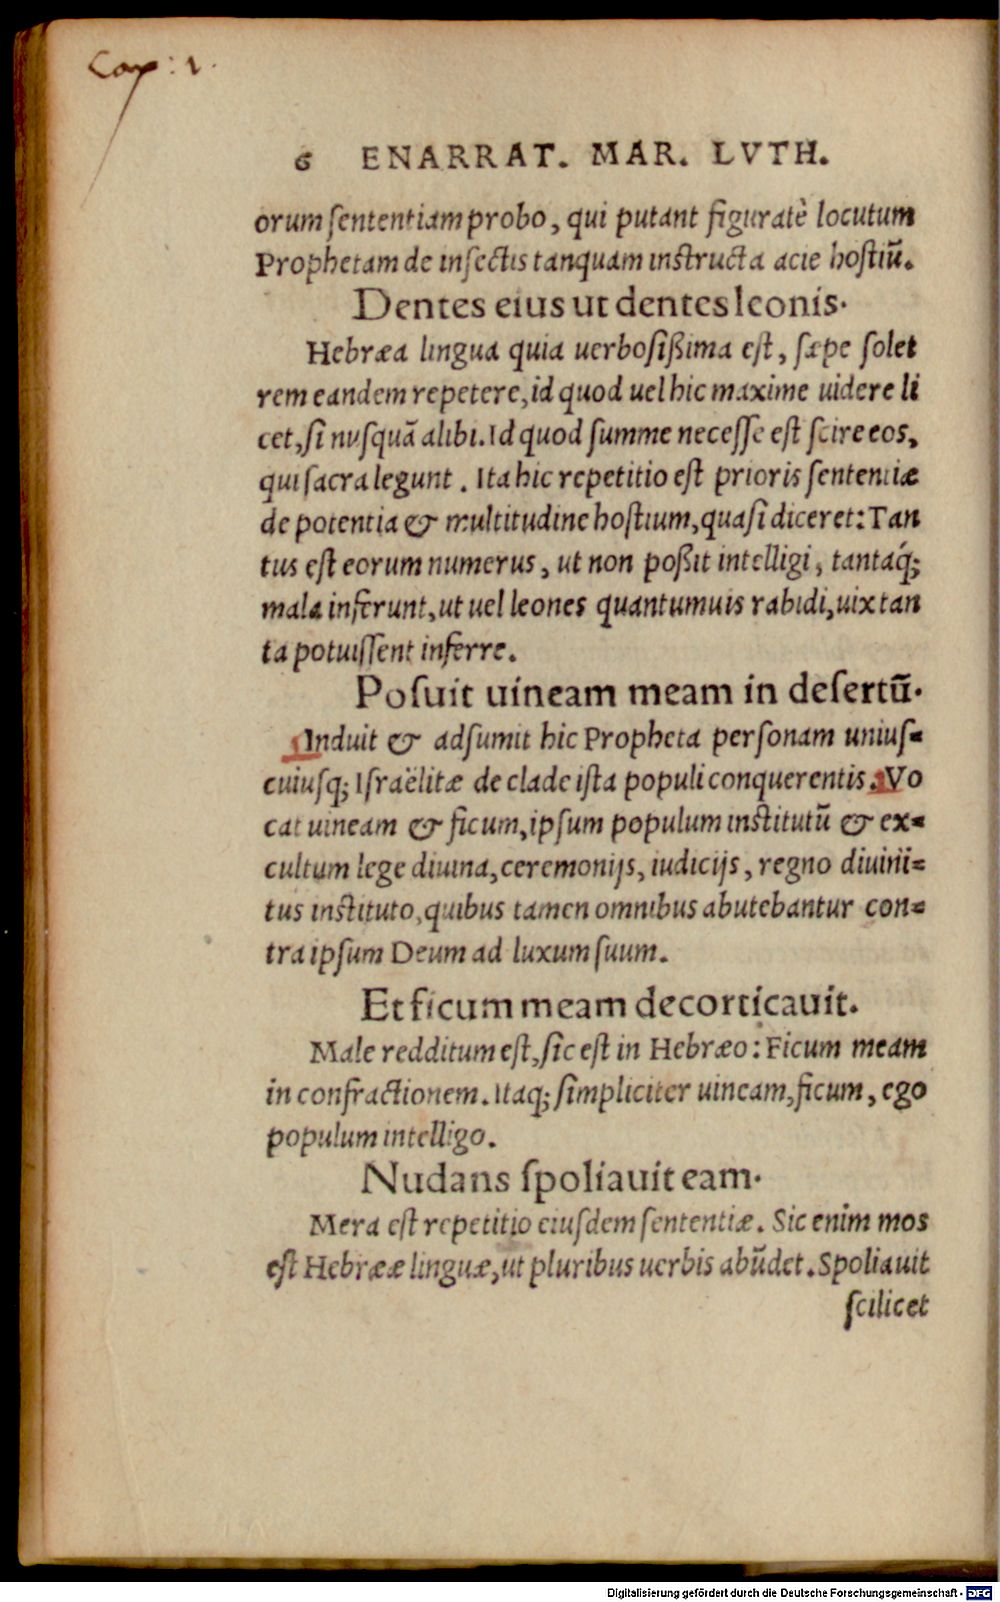 Cap: 1.
6 ENARRAT. MAR. LVTH.
orum ſententiam probo, qui putant figuratè locutum
Prophetam de inſectis tanquam instructa acie hoſtiũ.
Dentes eius ut dentes leonis.
Hebræa lingua quia uerboſiſſima eſt, ſæpe ſolet
rem eandem repetere, id quod uel hic maxime uidere li
cet, ſi nuſquã alibi. Id quod ſumme neceſſe eſt ſcire eos,
qui ſacra legunt. Ita hic repetitio eſt prioris ſententiæ
de potentia & multitudine hoſtium, quaſi diceret: Tan
tus eſt eorum numerus, ut non poßit intelligi, tantaq́;
mala inferunt, ut uel leones quantumuis rabidi, uix tan
ta potuiſſent inferre.
Poſuit uineam meam in deſertũ.
Induit & adſumit hic Propheta perſonam uniuſ=
cuiuſq; Iſraëlitæ de clade iſta populi conquerentis. Vo
cat uineam & ficum, ipſum populum inſtitutũ & ex=
cultum lege diuina, ceremonijs, iudicijs, regno diuini=
tus inſtituto, quibus tamen omnibus abutebantur con=
tra ipſum Deum ad luxum ſuum.
Et ficum meam decorticauit.
Male redditum eſt, ſic eſt in Hebræo: Ficum meam
in confractionem. Itaq; ſimpliciter uineam, ficum, ego
populum intelligo.
Nudans ſpoliauit eam.
Mera eſt repetitio eiuſdem ſententiæ. Sic enim mos
eſt Hebrææ linguæ, ut pluribus uerbis abũdet. Spoliauit
ſcilicet
Digitalisierung gefördert durch die Deutsche Forschungsgemeinschaft - DFG